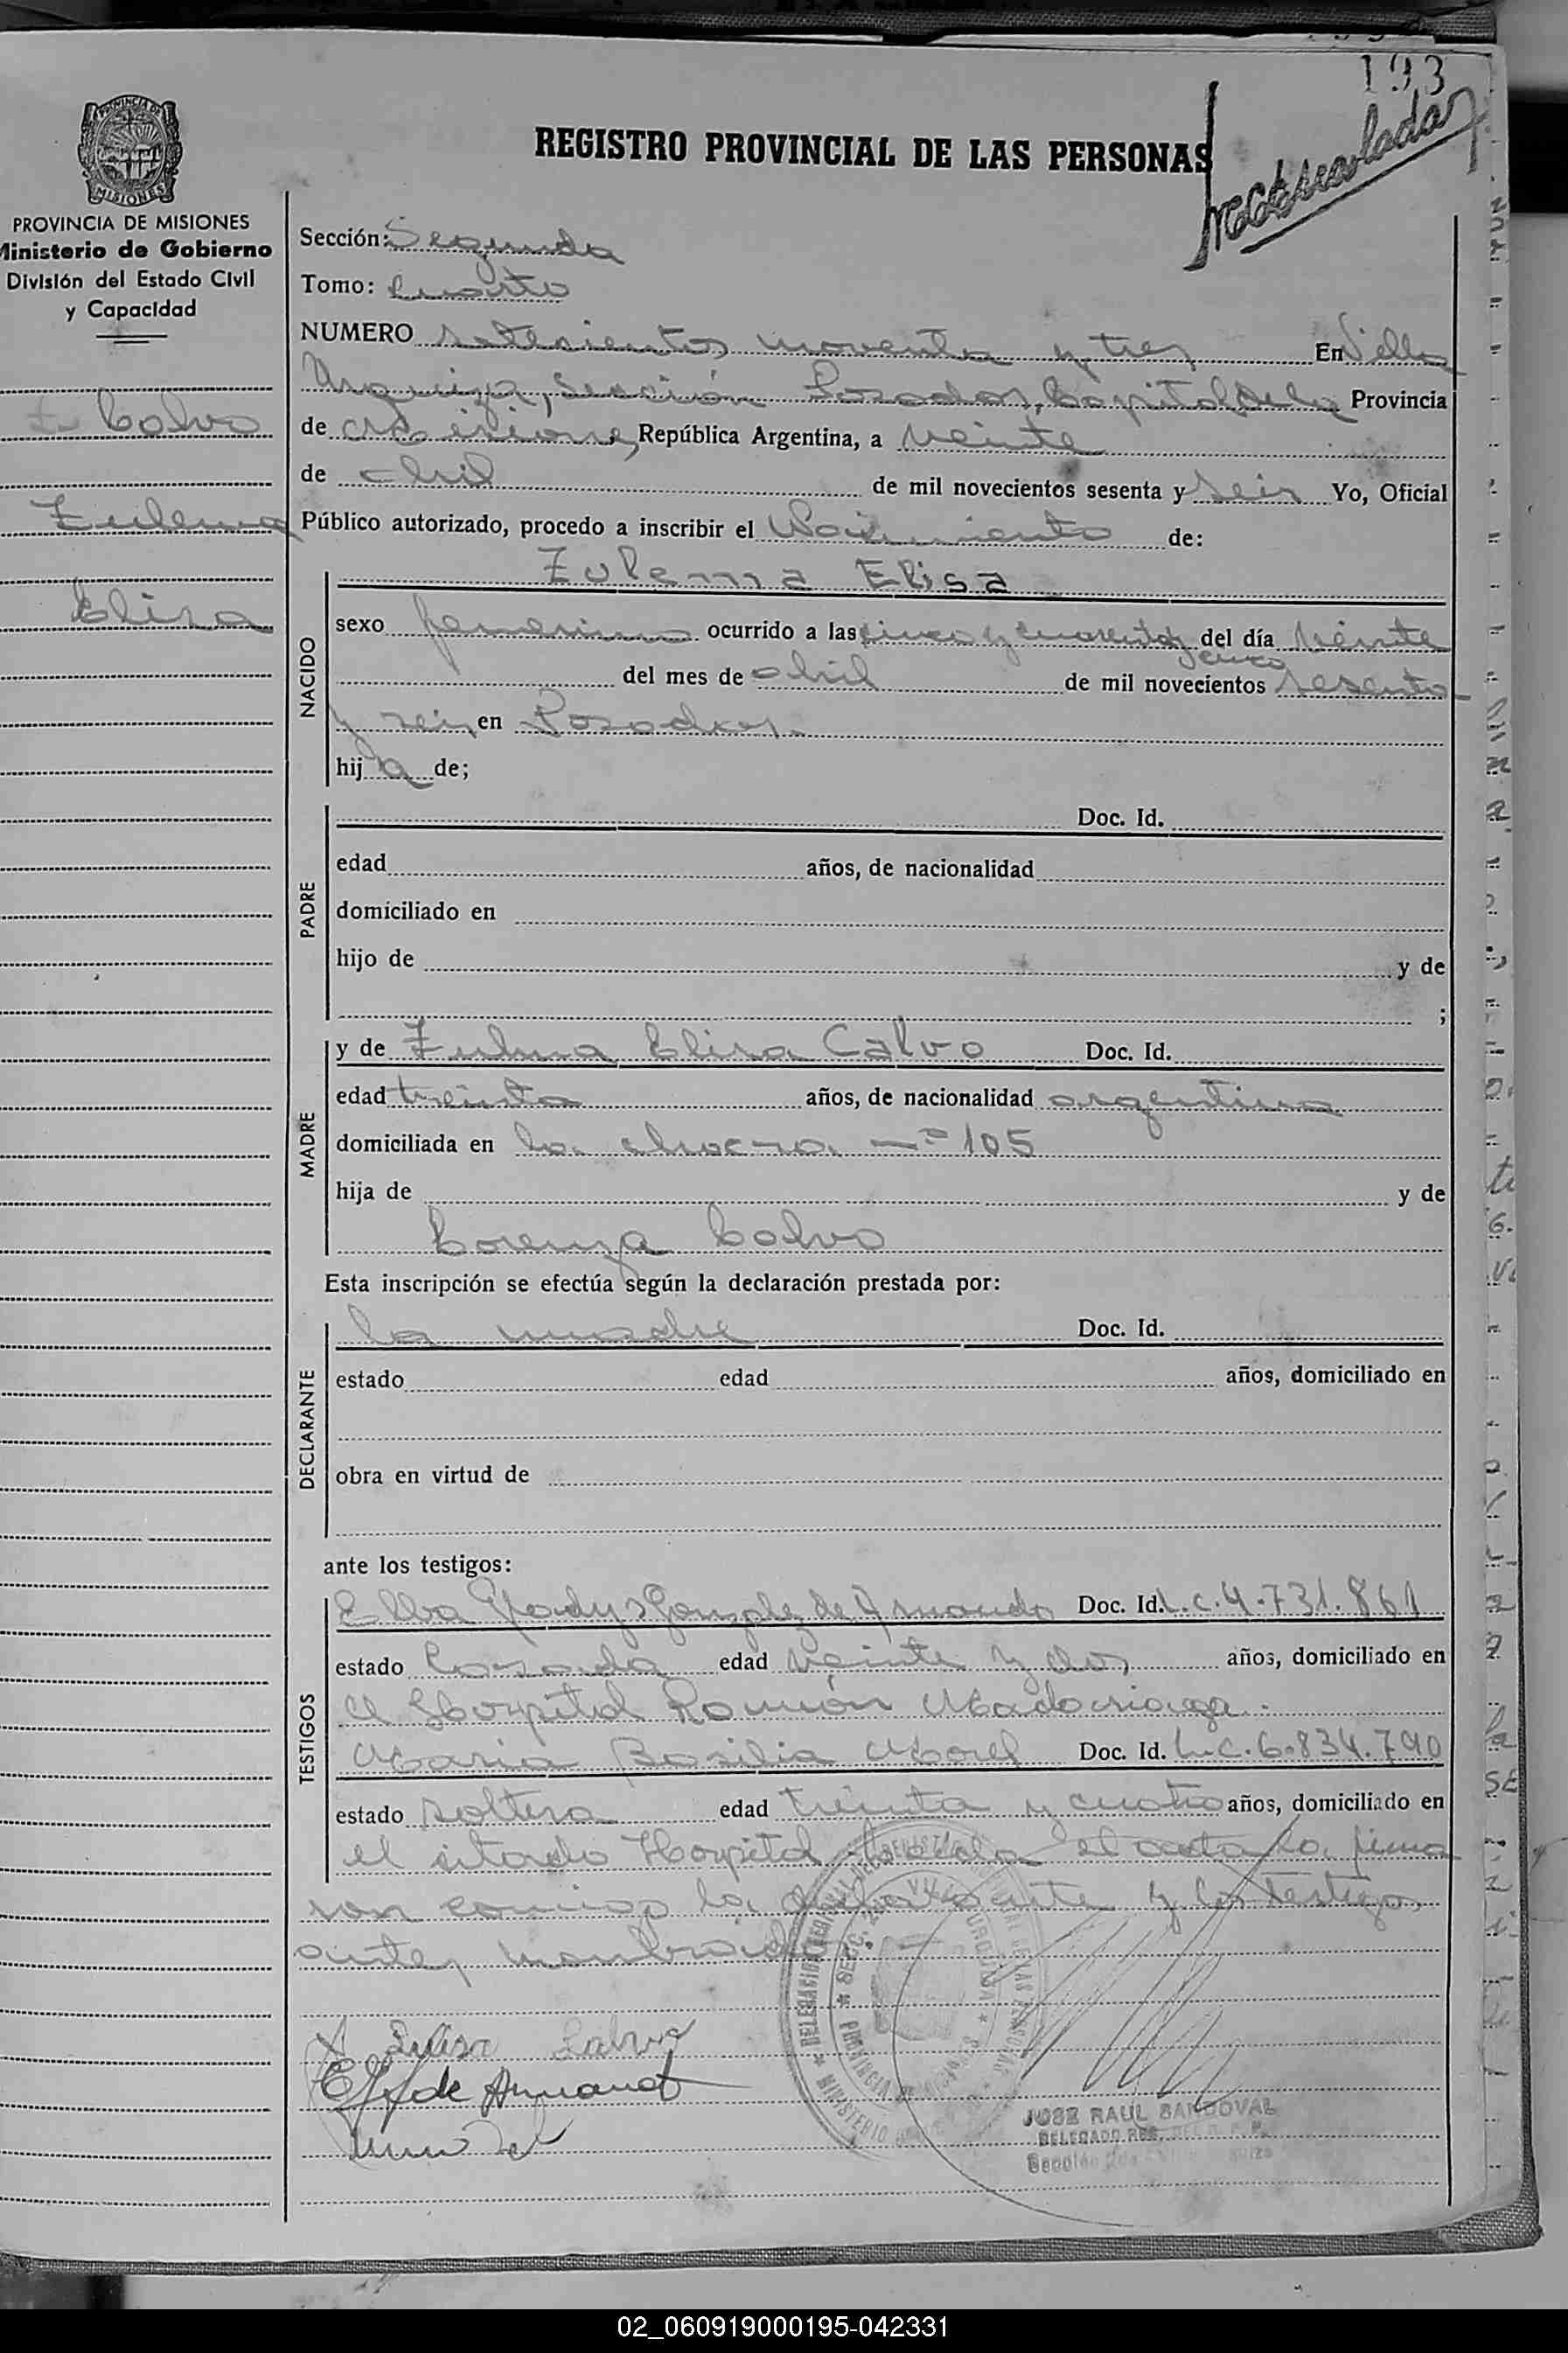 193
REGISTRO PROVINCIAL DE LAS PERSONAS
matriculada
PROVINCIA DE
MISIONES
PROVINCIA DE MISIONES
Ministerio de Gobierno
División del Estado Civil
y Capacidad
Calvo
Zulema
Elisa
Sección: Segunda
Tomo: Cuarto
NUMERO setecientos noventa y tres En Villa
Urquiza, Sección Posadas, Capital de la Provincia
de Misiones, República Argentina, a veinte
de abril de mil novecientos sesenta y seis Yo, Oficial
Público autorizado, procedo a inscribir el Nacimiento de:
NACIDO
Zulema Elisa
sexo femenino ocurrido a las cinco y cuarenta y cinco del día veinte
del mes de abril de mil novecientos sesenta
y seis en Posadas.
hija de;
PADRE
Doc. Id.
edad años, de nacionalidad
domiciliado en
hijo de y de
;
MADRE
y de Zulma Elisa Calvo Doc. Id.
edad treinta años, de nacionalidad argentina
domiciliada en la chacra nº 105
hija de y de
Lorenza Calvo
Esta inscripción se efectúa según la declaración prestada por:
DECLARANTE
la madre Doc. Id.
estado edad años, domiciliado en
obra en virtud de
ante los testigos:
TESTIGOS
Elba Gladys González de Armando Doc. Id. L.C. 4.731.861
estado Casada edad veinte y dos años, domiciliado en
el Hospital Ramón Madariaga.
Maria Basilia Morel Doc. Id. L.C. 6.834.790
estado soltera edad treinta y cuatro años, domiciliado en
el citado Hospital leida el acta la firma
ron conmigo la declarante y los testigos
antes nombrados.
Luisa Calvo
EG de Armando
JOSE RAUL SANDOVAL
DELEGADO
02_060919000195-042331